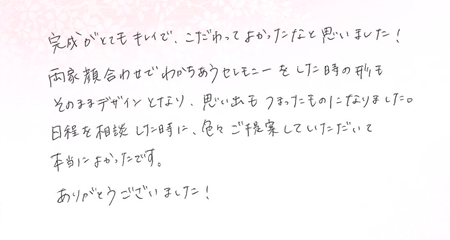 完成がとてもキレイで、こだわってよかったなと思いました！
両家顔合わせでわかちあうセレモニーをした時の形も
そのままデザインとなり、思い出もつまったものになりました。
日程を相談した時に、色々ご提案していただいて
本当によかったです。
ありがとうございました！